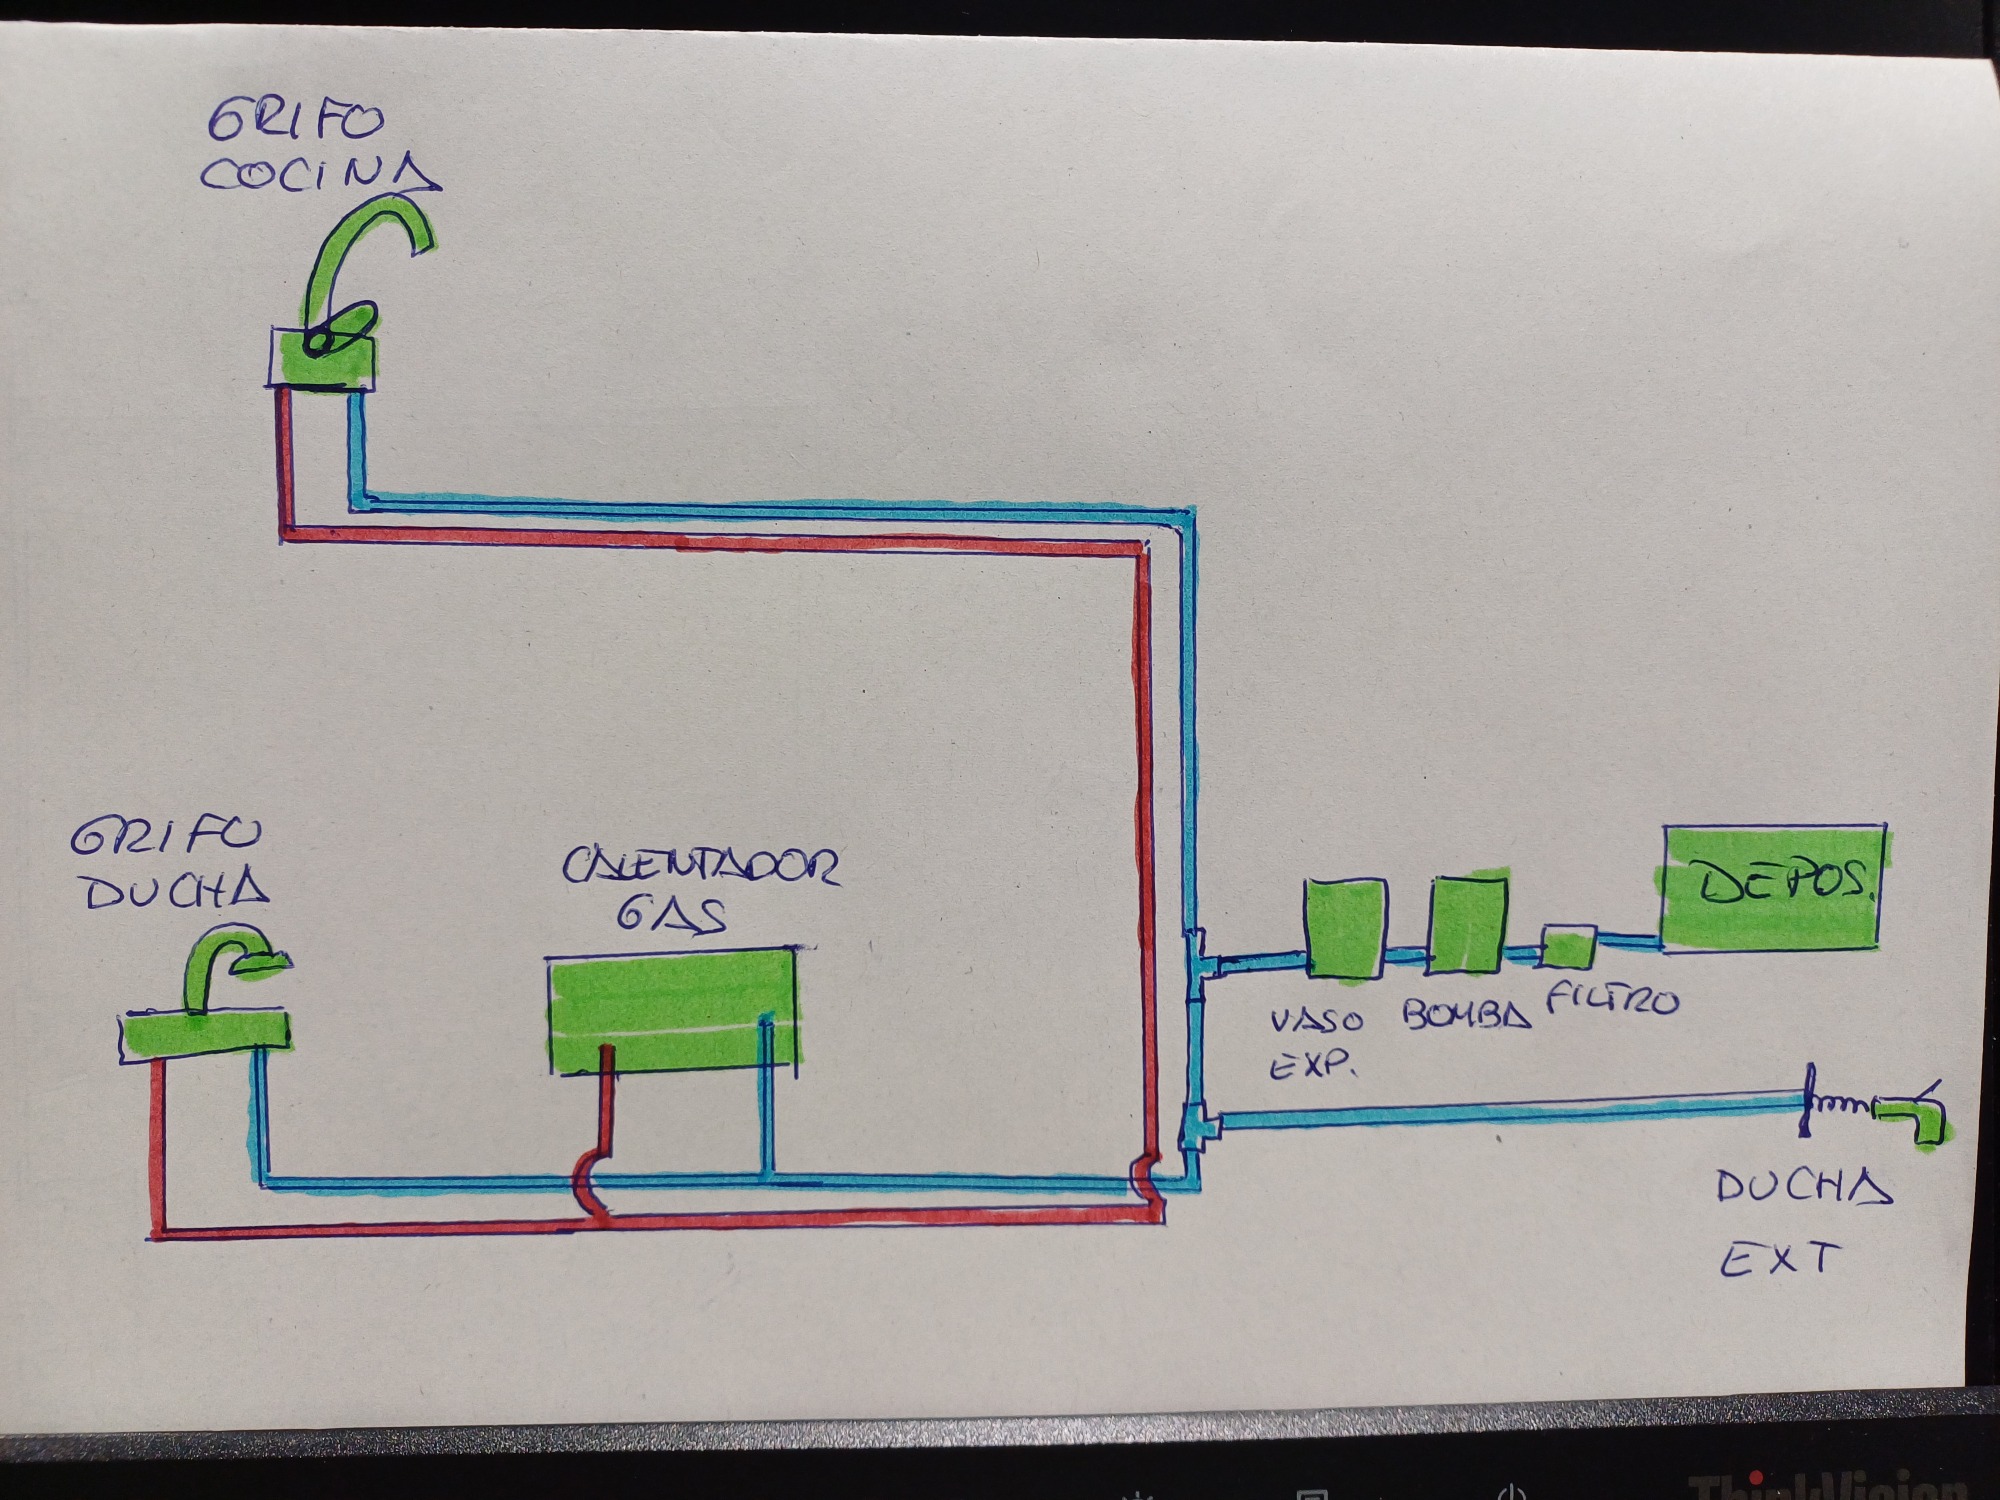 GRIFO
COCINA
GRIFO
DUCHA
CALENTADOR
GAS
DEPOS.
VASO
EXP.
BOMBA
FILTRO
DUCHA
EXT
ThinkVision